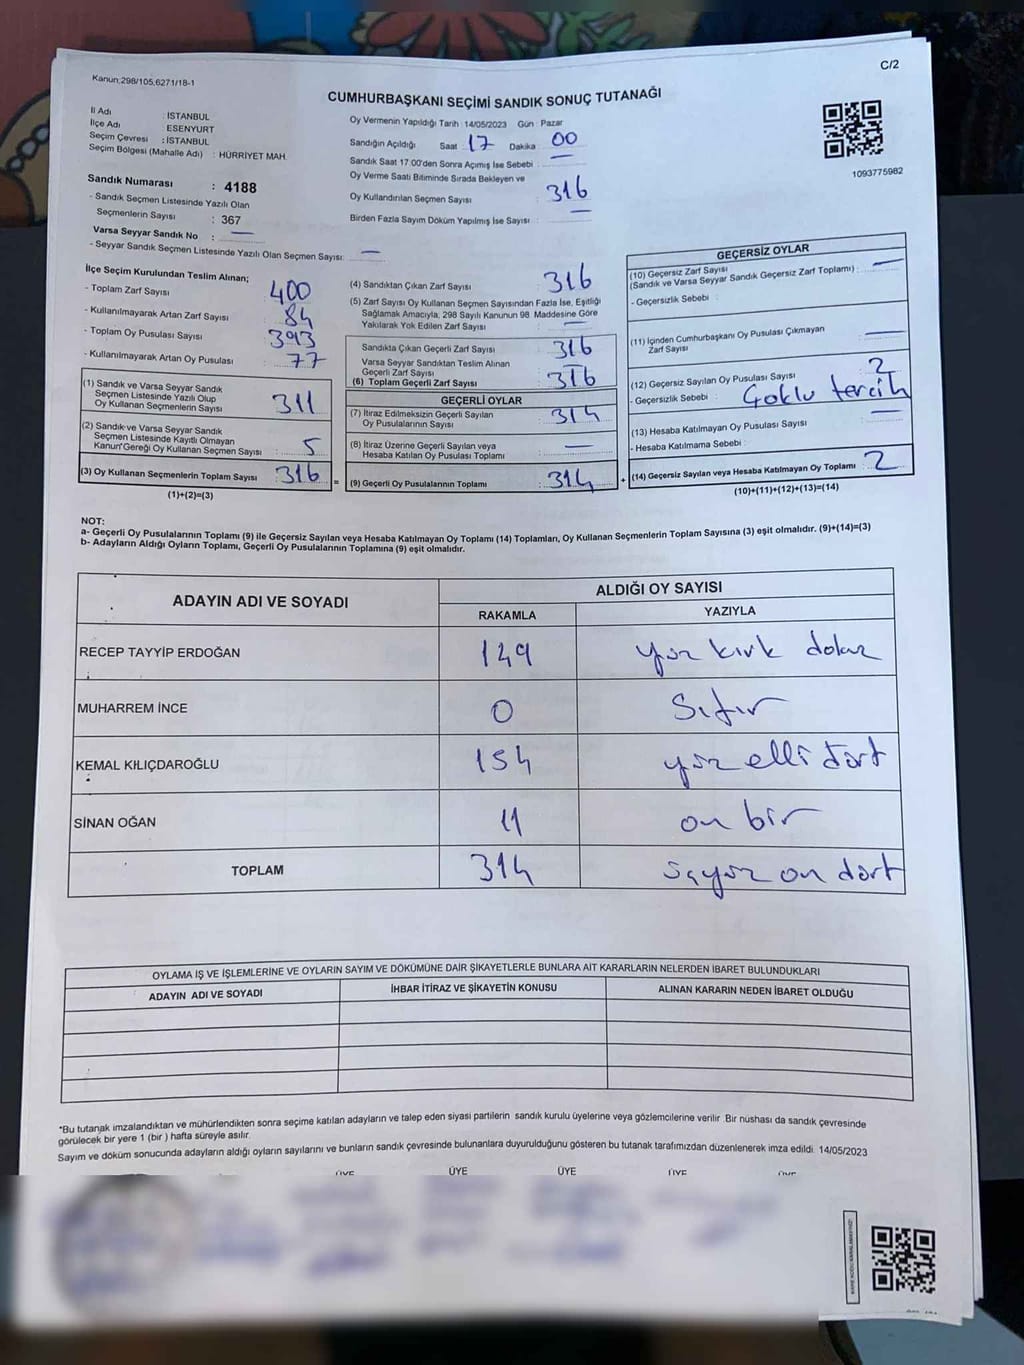 Kanun;298/105,6271/18-1
C/2
CUMHURBAŞKANI SEÇİMİ SANDIK SONUÇ TUTANAĞI
İl Adı : İSTANBUL
İlçe Adı : ESENYURT
Seçim Çevresi : İSTANBUL
Seçim Bölgesi (Mahalle Adı) : HÜRRİYET MAH.
Oy Vermenin Yapıldığı Tarih :14/05/2023 Gün : Pazar
Sandığın Açıldığı Saat 17 Dakika 00
Sandık Saat 17:00'den Sonra Açımış İse Sebebi : —
Oy Verme Saati Bitiminde Sırada Bekleyen ve
Oy Kullandırılan Seçmen Sayısı : 316
Birden Fazla Sayım Döküm Yapılmış İse Sayısı : —
1093775982
Sandık Numarası : 4188
- Sandık Seçmen Listesinde Yazılı Olan
Seçmenlerin Sayısı : 367
Varsa Seyyar Sandık No : —
- Seyyar Sandık Seçmen Listesinde Yazılı Olan Seçmen Sayısı: —
İlçe Seçim Kurulundan Teslim Alınan;
- Toplam Zarf Sayısı : 400
- Kullanılmayarak Artan Zarf Sayısı : 84
- Toplam Oy Pusulası Sayısı : 393
- Kullanılmayarak Artan Oy Pusulası : 77
(1) Sandık ve Varsa Seyyar Sandık
Seçmen Listesinde Yazılı Olup
Oy Kullanan Seçmenlerin Sayısı : 311
(2) Sandık ve Varsa Seyyar Sandık
Seçmen Listesinde Kayıtlı Olmayan
Kanun Gereği Oy Kullanan Seçmen Sayısı : 5
(3) Oy Kullanan Seçmenlerin Toplam Sayısı : 316
(1)+(2)=(3)
=
(4) Sandıktan Çıkan Zarf Sayısı : 316
(5) Zarf Sayısı Oy Kullanan Seçmen Sayısından Fazla İse, Eşitliği
Sağlamak Amacıyla, 298 Sayılı Kanunun 98. Maddesine Göre
Yakılarak Yok Edilen Zarf Sayısı : —
Sandıkta Çıkan Geçerli Zarf Sayısı : 316
Varsa Seyyar Sandıktan Teslim Alınan
Geçerli Zarf Sayısı : —
(6) Toplam Geçerli Zarf Sayısı : 316
GEÇERLİ OYLAR
(7) İtiraz Edilmeksizin Geçerli Sayılan
Oy Pusulasının Sayısı : 314
(8) İtiraz Üzerine Geçerli Sayılan veya
Hesaba Katılan Oy Pusulası Toplamı : —
(9) Geçerli Oy Pusulalarının Toplamı : 314
+
GEÇERSİZ OYLAR
(10) Geçersiz Zarf Sayısı
(Sandık ve Varsa Seyyar Sandık Geçersiz Zarf Toplamı) : —
- Geçersizlik Sebebi :
(11) İçinden Cumhurbaşkanı Oy Pusulası Çıkmayan
Zarf Sayısı : —
(12) Geçersiz Sayılan Oy Pusulası Sayısı : 2
- Geçersizlik Sebebi : Çoklu tercih
(13) Hesaba Katılmayan Oy Pusulası Sayısı : —
- Hesaba Katılmama Sebebi :
(14) Geçersiz Sayılan veya Hesaba Katılmayan Oy Toplamı : 2
(10)+(11)+(12)+(13)=(14)
NOT:
a- Geçerli Oy Pusulalarının Toplamı (9) ile Geçersiz Sayılan veya Hesaba Katılmayan Oy Toplamı (14) Toplamları, Oy Kullanan Seçmenlerin Toplam Sayısına (3) eşit olmalıdır. (9)+(14)=(3)
b- Adayların Aldığı Oyların Toplamı, Geçerli Oy Pusulalarının Toplamına (9) eşit olmalıdır.
ADAYIN ADI VE SOYADI
ALDIĞI OY SAYISI
RAKAMLA YAZIYLA
RECEP TAYYİP ERDOĞAN 149 yüz kırk dokuz
MUHARREM İNCE 0 Sıfır
KEMAL KILIÇDAROĞLU 154 yüz elli dört
SİNAN OĞAN 11 on bir
TOPLAM 314 üçyüz on dört
OYLAMA İŞ VE İŞLEMLERİNE VE OYLARIN SAYIM VE DÖKÜMÜNE DAİR ŞİKAYETLERLE BUNLARA AİT KARARLARIN NELERDEN İBARET BULUNDUKLARI
ADAYIN ADI VE SOYADI İHBAR İTİRAZ VE ŞİKAYETİN KONUSU ALINAN KARARIN NEDEN İBARET OLDUĞU
*Bu tutanak imzalandıktan ve mühürlendikten sonra seçime katılan adayların ve talep eden siyasi partilerin sandık kurulu üyelerine veya gözlemcilerine verilir. Bir nüshası da sandık çevresinde
görülecek bir yere 1 (bir ) hafta süreyle asılır.
Sayım ve döküm sonucunda adayların aldığı oyların sayılarını ve bunların sandık çevresinde bulunanlara duyurulduğunu gösteren bu tutanak tarafımızdan düzenlenerek imza edildi. 14/05/2023
ÜYE ÜYE ÜYE ÜYE